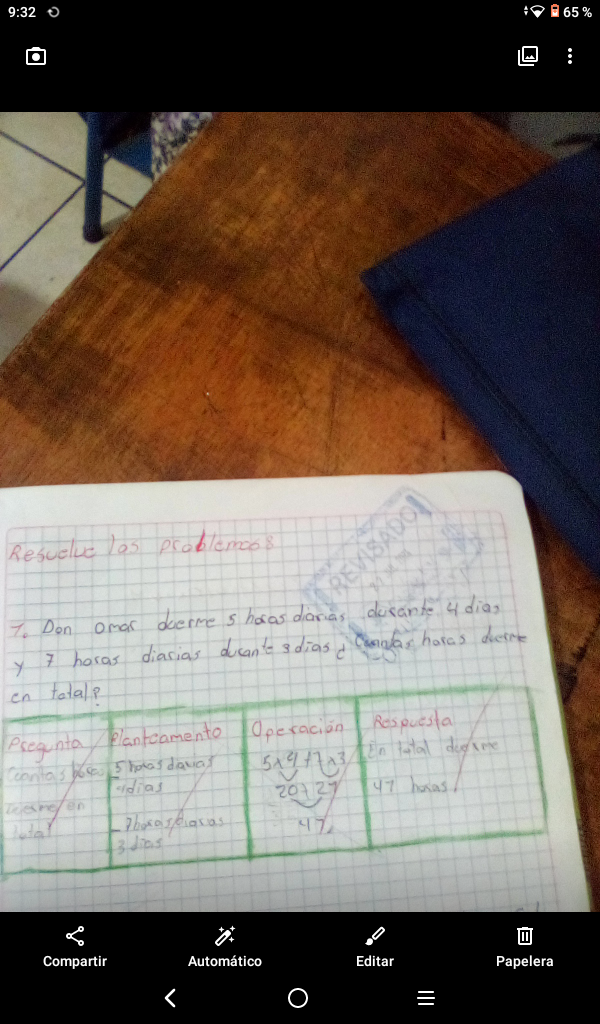 9:32
65 %
Resuelve los problemas
REVISADO
1. Don omar duerme 5 horas diarias durante 4 dias
y 7 horas diarias durante 3 dias ¿ Cuantas horas duerme
en total?
Pregunta Planteamento Operación Respuesta
Cuantas horas 5 horas diarias 5x4+7x3 En total duerme
duerme en 4 dias 20+27 47 horas
total - 7 horas diarias 47
3 dias
Compartir Automático Editar Papelera